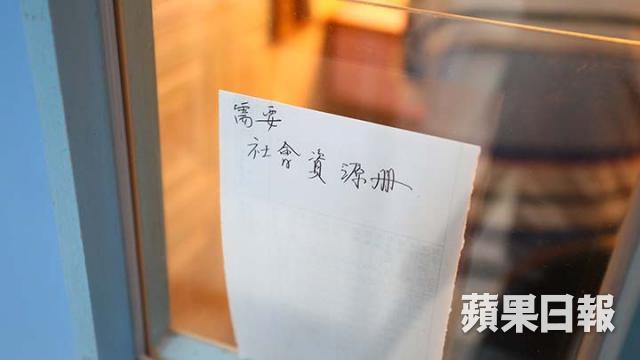 需要
社會資源册
蘋果日報